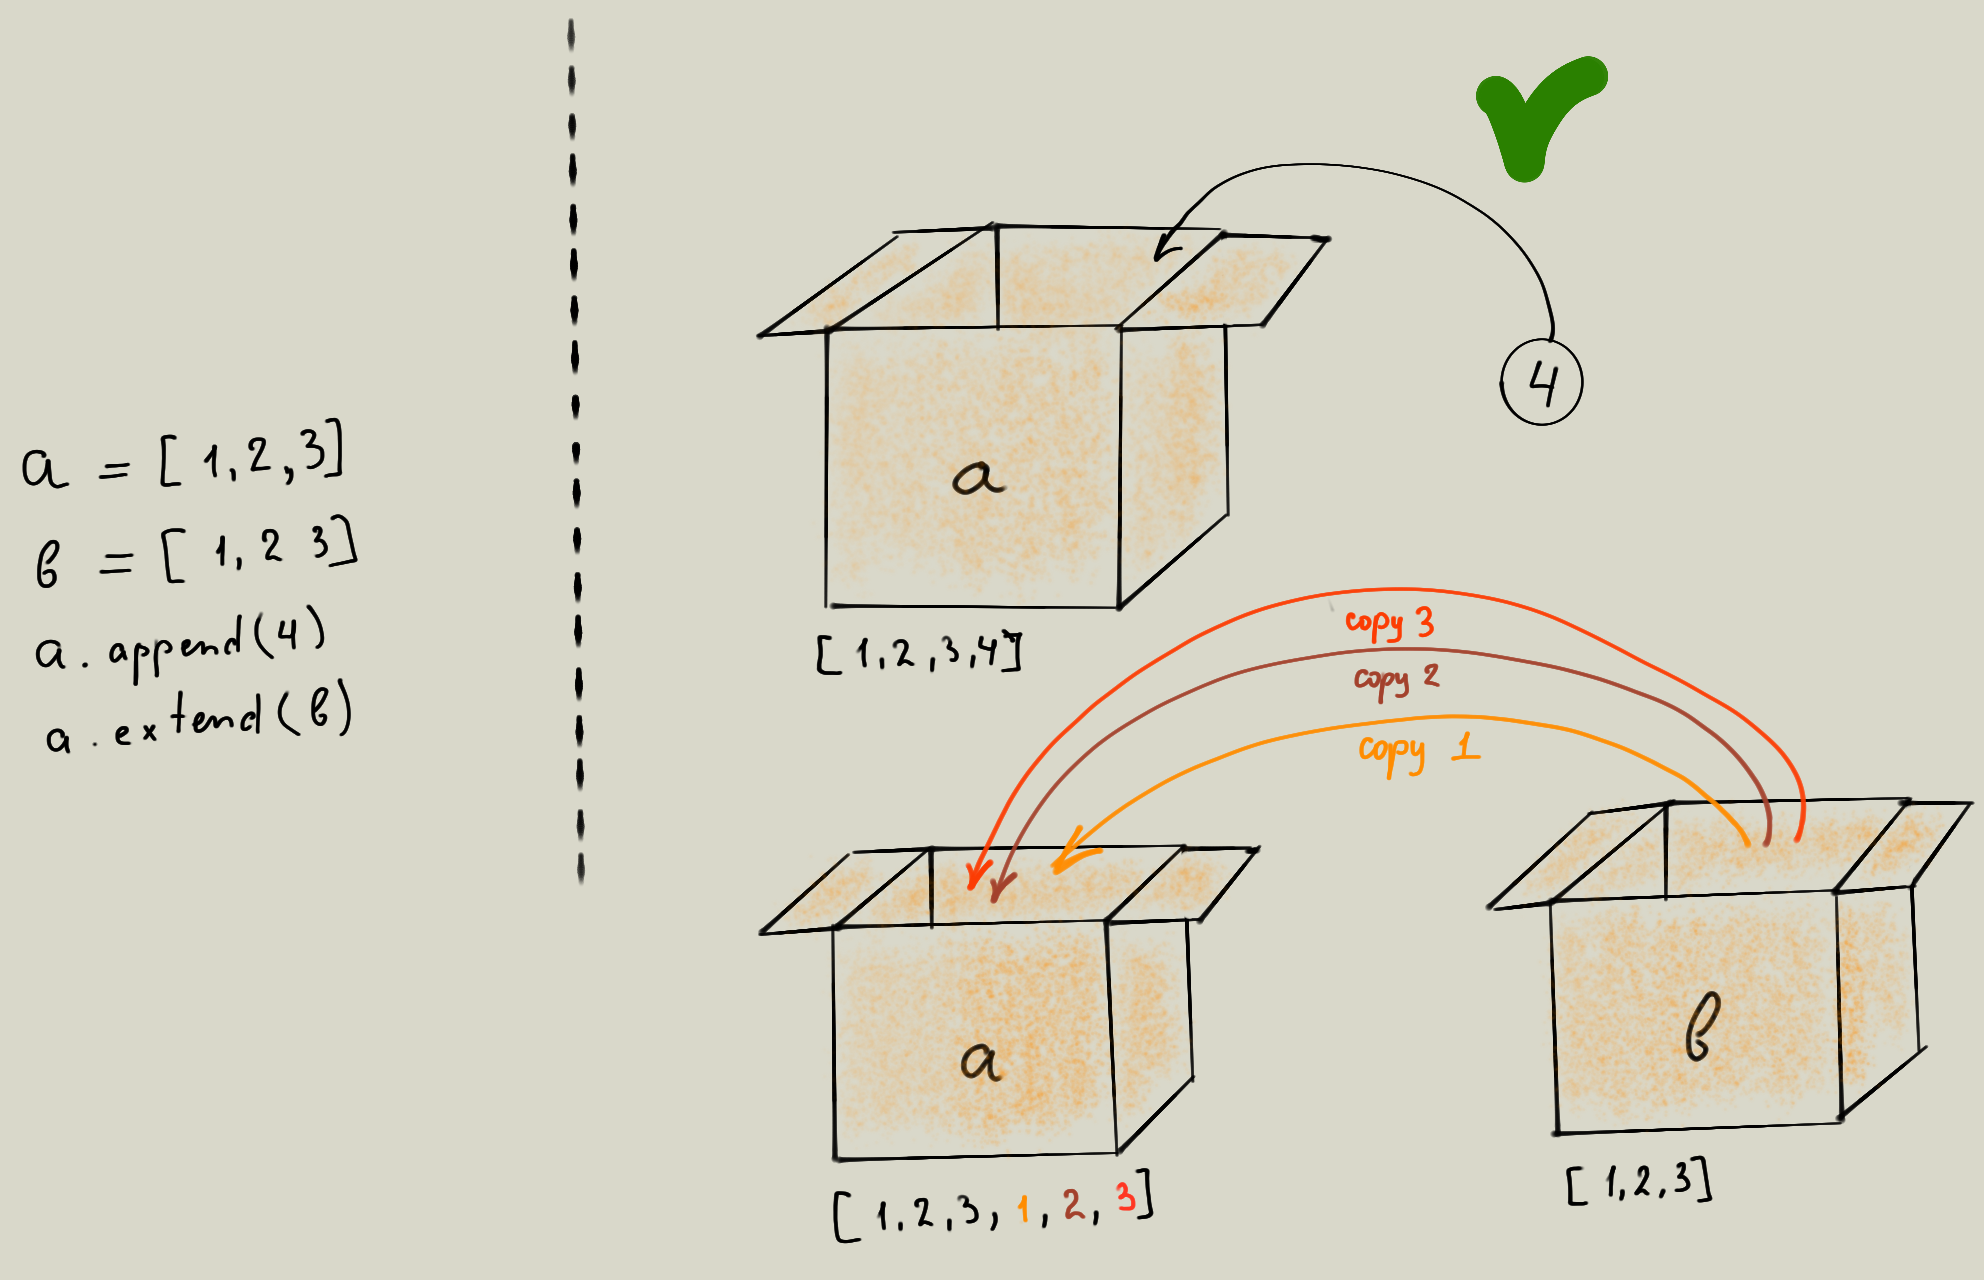 a = [ 1, 2, 3]
b = [ 1, 2 3]
a. append(4)
a. extend(b)
4
a
[ 1, 2, 3, 4]
copy 3
copy 2
copy 1
a
b
[ 1, 2, 3, 1, 2, 3]
[ 1, 2, 3]